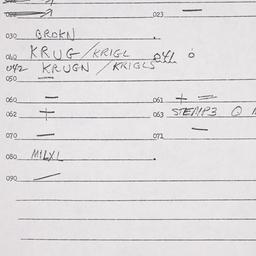 022 023 —
030 BROKN .
040 KRUG / KRIGL 041 ò
042 KRUGN / KRIGLS
050 —
060 — 061 + =
062 + 063 STEMP3 O
070 — 071 —
080 MILXL .
090 —